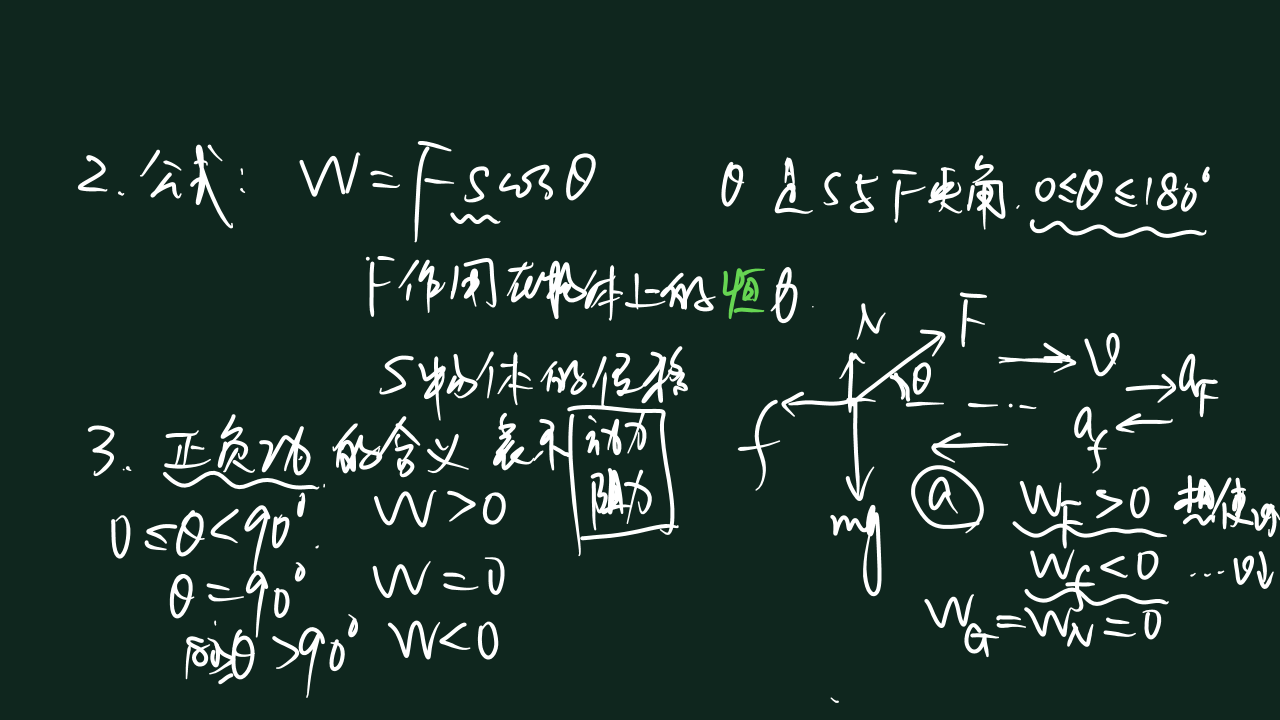 2. 公式: W = F s cosθ
θ 是 S 与 F 夹角. 0≤θ≤180°
F 作用在物体上的恒力.
S 物体的位移
3. 正负功的含义 表示 动力
阻力
0≤θ<90°. W>0
θ=90° W=0
180≥θ>90° W<0
N
F
θ
v
a_F
f
a_f
a
mg
W_F>0 想使v↑
W_f<0 ...v↓
W_G=W_N=0